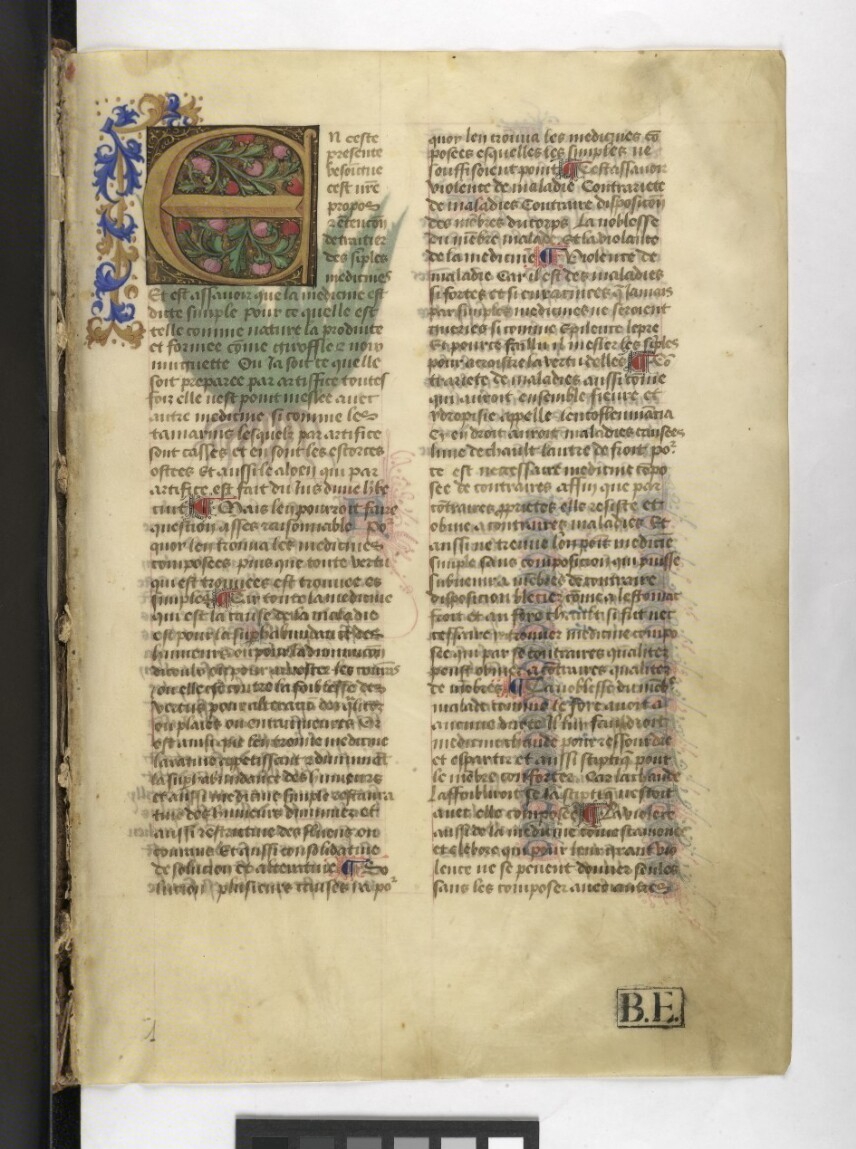 En ceste
presente
besoingne
cest nr̃e
propos
⁊ ẽtencõn
de traitier
des sĩples
medicines
Et est assauoir que la medicine est
ditte simple pour ce quelle est
telle comme nature la produite
et formee cõme giroffle ⁊ noix
muguette Ou Ja soit ce quelle
soit preparee par artiffice toutes
foiz elle nest point meslee auec
autre medicine si comme les
tamarins lesquelz par artifice
sont casses et en sont les escorces
ostees Et aussi le aloen qui par
artifice est fait du Jus dune herbe
Mais len pourroit faire
question asses raisonnable Po
quoy len trouua les medicines
composees puis que toute vertu
qui est trouuees est trouuee es
simples Car toute la medicine
qui est la cause de la maladie
est pour la sup̱habundãce des
humeurs ou pour la diminucion
ou elle est contre la foiblesse des
vertus pour alteracõn des q̃litez
ou plaies ou entamures Or
est ainsi que len treuue medicine
laxatiue repetissant ⁊ diminuãt
la sup̱habundance des humeurs
et aussi medicine simple restaura
tiue des humeurs diminuez et
aussi restrictiue des fluens ou
courans Et aussi consolidatiue
de solucion et alteratiue So
lucion plusieurs causes sa poʳ
quoy len trouua les medicines cõ
posees esquelles les simples ne
souffisoient point Cest assauoir
violence de maladie Contrariete
de maladies Contraire disposicõn
des mẽbres du corps La noblesse
du mẽbre malade Et la violance
de la medicine Violence de
maladie Car il est des maladies
si fortes et si enracinees q̃ Jamais
par simples medicines ne seroient
gueries si comme Epilence lepre
Et pour ce failly il mesler les sĩples
pour acroistre la vertu delles Cõ
trariete de maladies aussi cõme
qui auroit ensemble fieure et
ydropisie appelle leucofleumãcia
Cy endroit auroit maladies causees
lune de chault lautre de froit poʳ
ce est necessaire medicine cõpo
see de contraires affin que par
cõtraires ꝓprietes elle resiste et
obuie a contraires maladies Et
aussi ne treuue lon poit medicie
simple sans composicion qui puisse
subuenir a mẽbres de contraire
disposicion blecies cõme a lestomac
froit et au foye chault si fut nec
cessaire ⁊ trouuer medicine compo
see qui par ses contraires qualitez
peust obuier a cõtraires qualitez
de mẽbres La noblesse du mẽbʳ
malade comme le foye auoit a
aucune durete Il luy faudroit
medicine chaude pour ressouldre
et espartir et aussi stiptiq̃ pour
le mẽbre conforter Car la chaude
laffoibliroit se la stiptique nestoit
auec elle composee La violece
aussi de la medicine cõme scamonee
et elebore qui pour leur grant vio
lence ne se peuent donner seules
sans les composer auec autres
1
B.E.